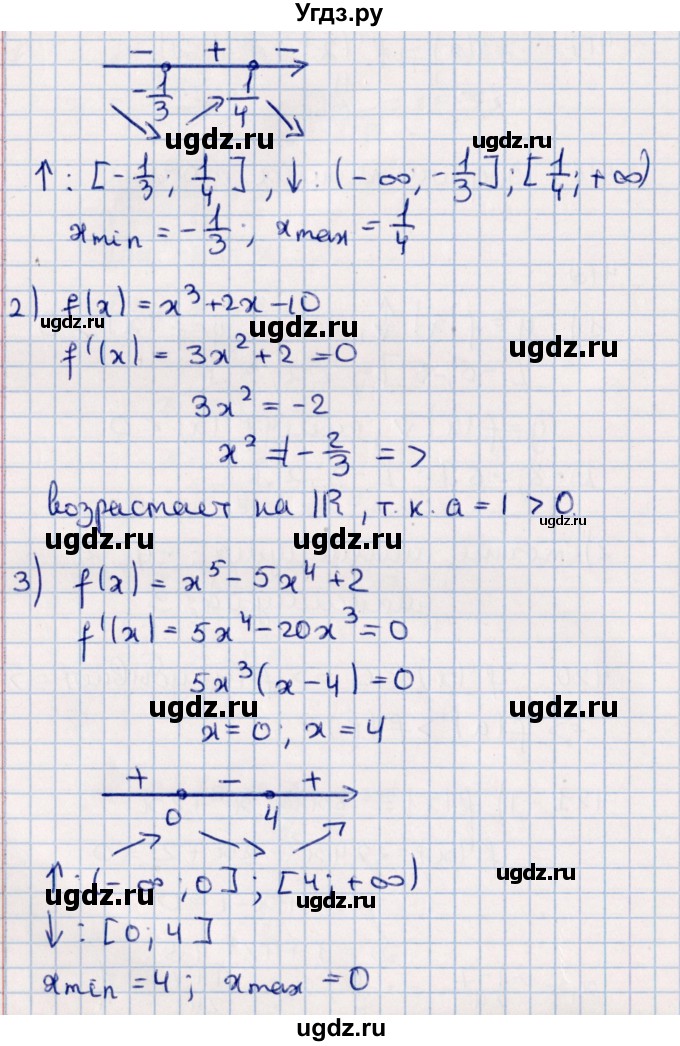 Угдз.ру
− + −
-1/3 1/4
ugdz.ru ugdz.ru
↑: [-1/3; 1/4]; ↓: (-∞, -1/3]; [1/4; +∞)
ugdz.ru
xmin = -1/3; xmax = 1/4
2) f(x) = x³+2x-10
ugdz.ru ugdz.ru
f'(x) = 3x²+2 = 0
ugdz.ru
3x² = -2
x² ≠ -2/3 =>
возрастает на ℝ, т.к. a = 1 > 0
ugdz.ru
ugdz.ru ugdz.ru
3) f(x) = x⁵-5x⁴+2
f'(x) = 5x⁴-20x³=0
5x³(x-4)=0
ugdz.ru ugdz.ru
x=0; x=4
+ − +
0 4
↑: (-∞; 0]; [4; +∞)
ugdz.ru ugdz.ru ugdz.ru
↓: [0; 4]
xmin = 4; xmax = 0
ugdz.ru